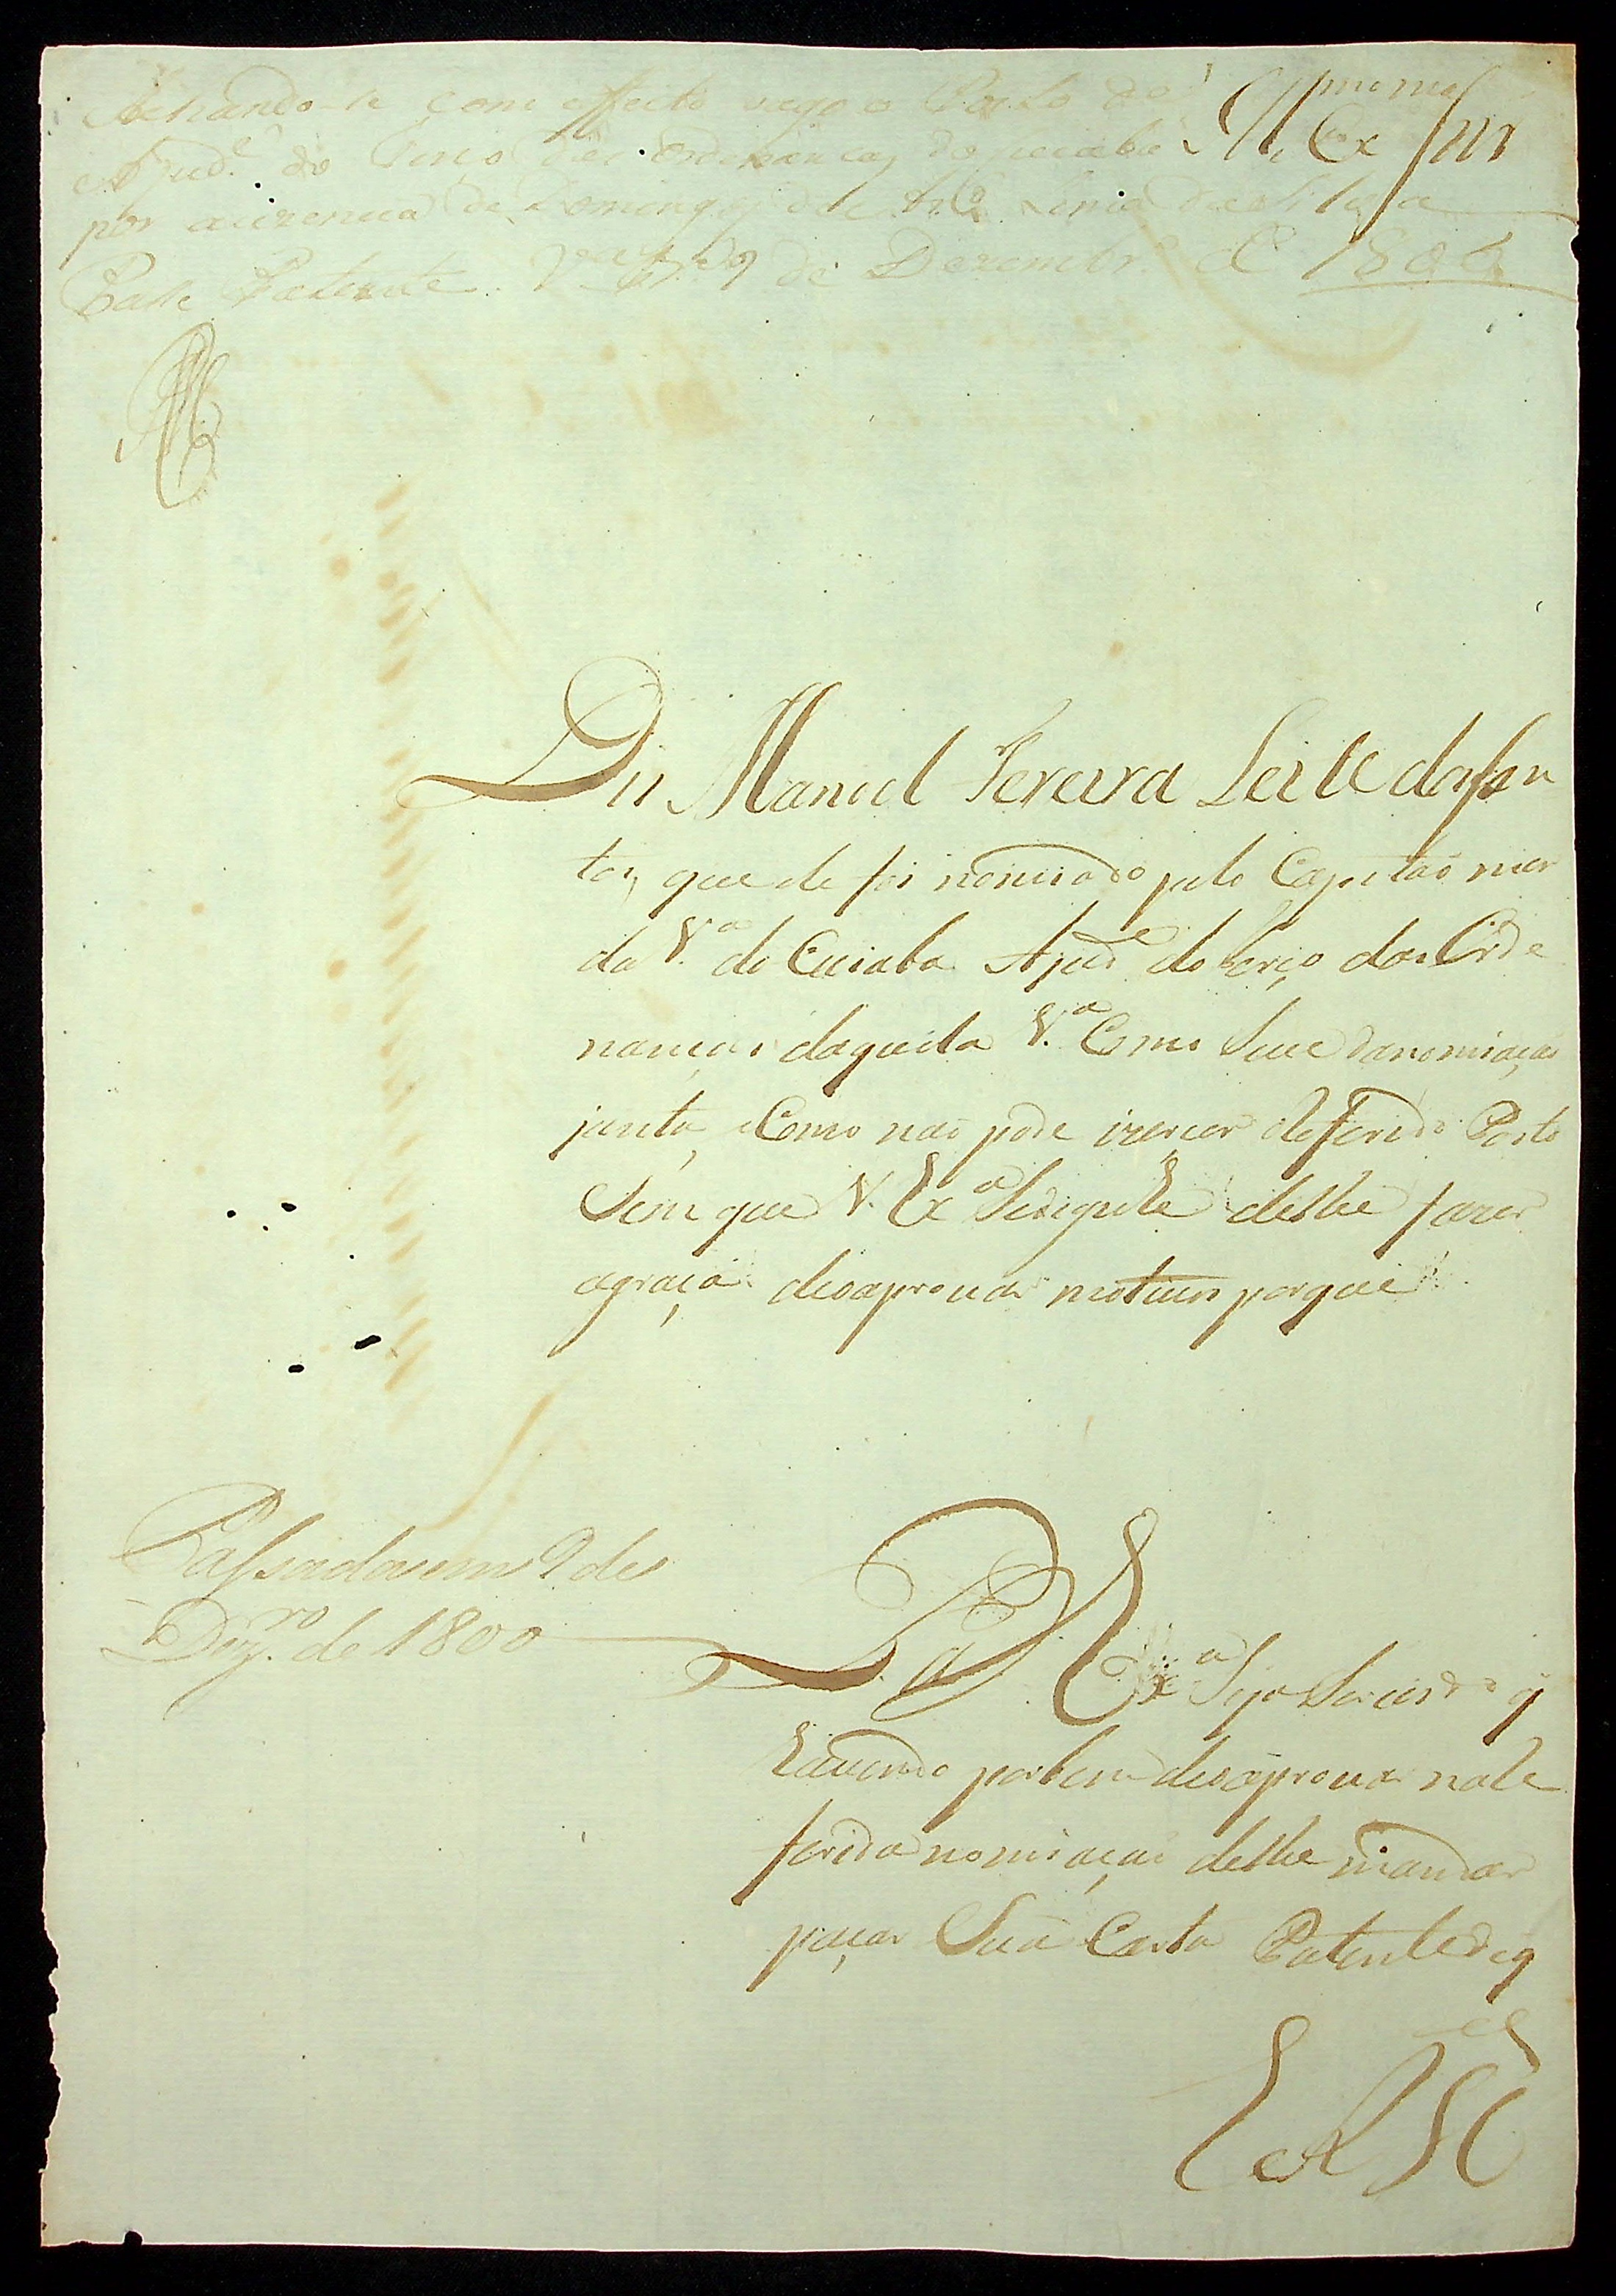 Achando-se com effeito vago o Posto de
Ajud.e do Terço das Ordenanças do Cuiabá
por auzencia de Domingos da Silva
Passe Patente. V.a B.a 9 de Dezembro de 1800
Ill.mo e Ex.mo Snr
Diz Manoel Pereira Leite da
que ele foi nomiado pelo Capitão mor
da V.a do Cuiaba Ajud.e do terço das Orde
nanças daquela V.a Como Sua da nomiação
junta, e Como não pode izerçer oReferido Posto
Sem que V. Ex.a Sedigne delhe fazer
agraça deoaprouar motiuo porque
Passada em 9 de
Dez.ro de 1800
P. a V. Ex.a Seja Seruido q
Hauendo porbem deoaprouar nare
ferida nomiação delhe mandar
paçar Sua Carta Patente deq
E R M.ce